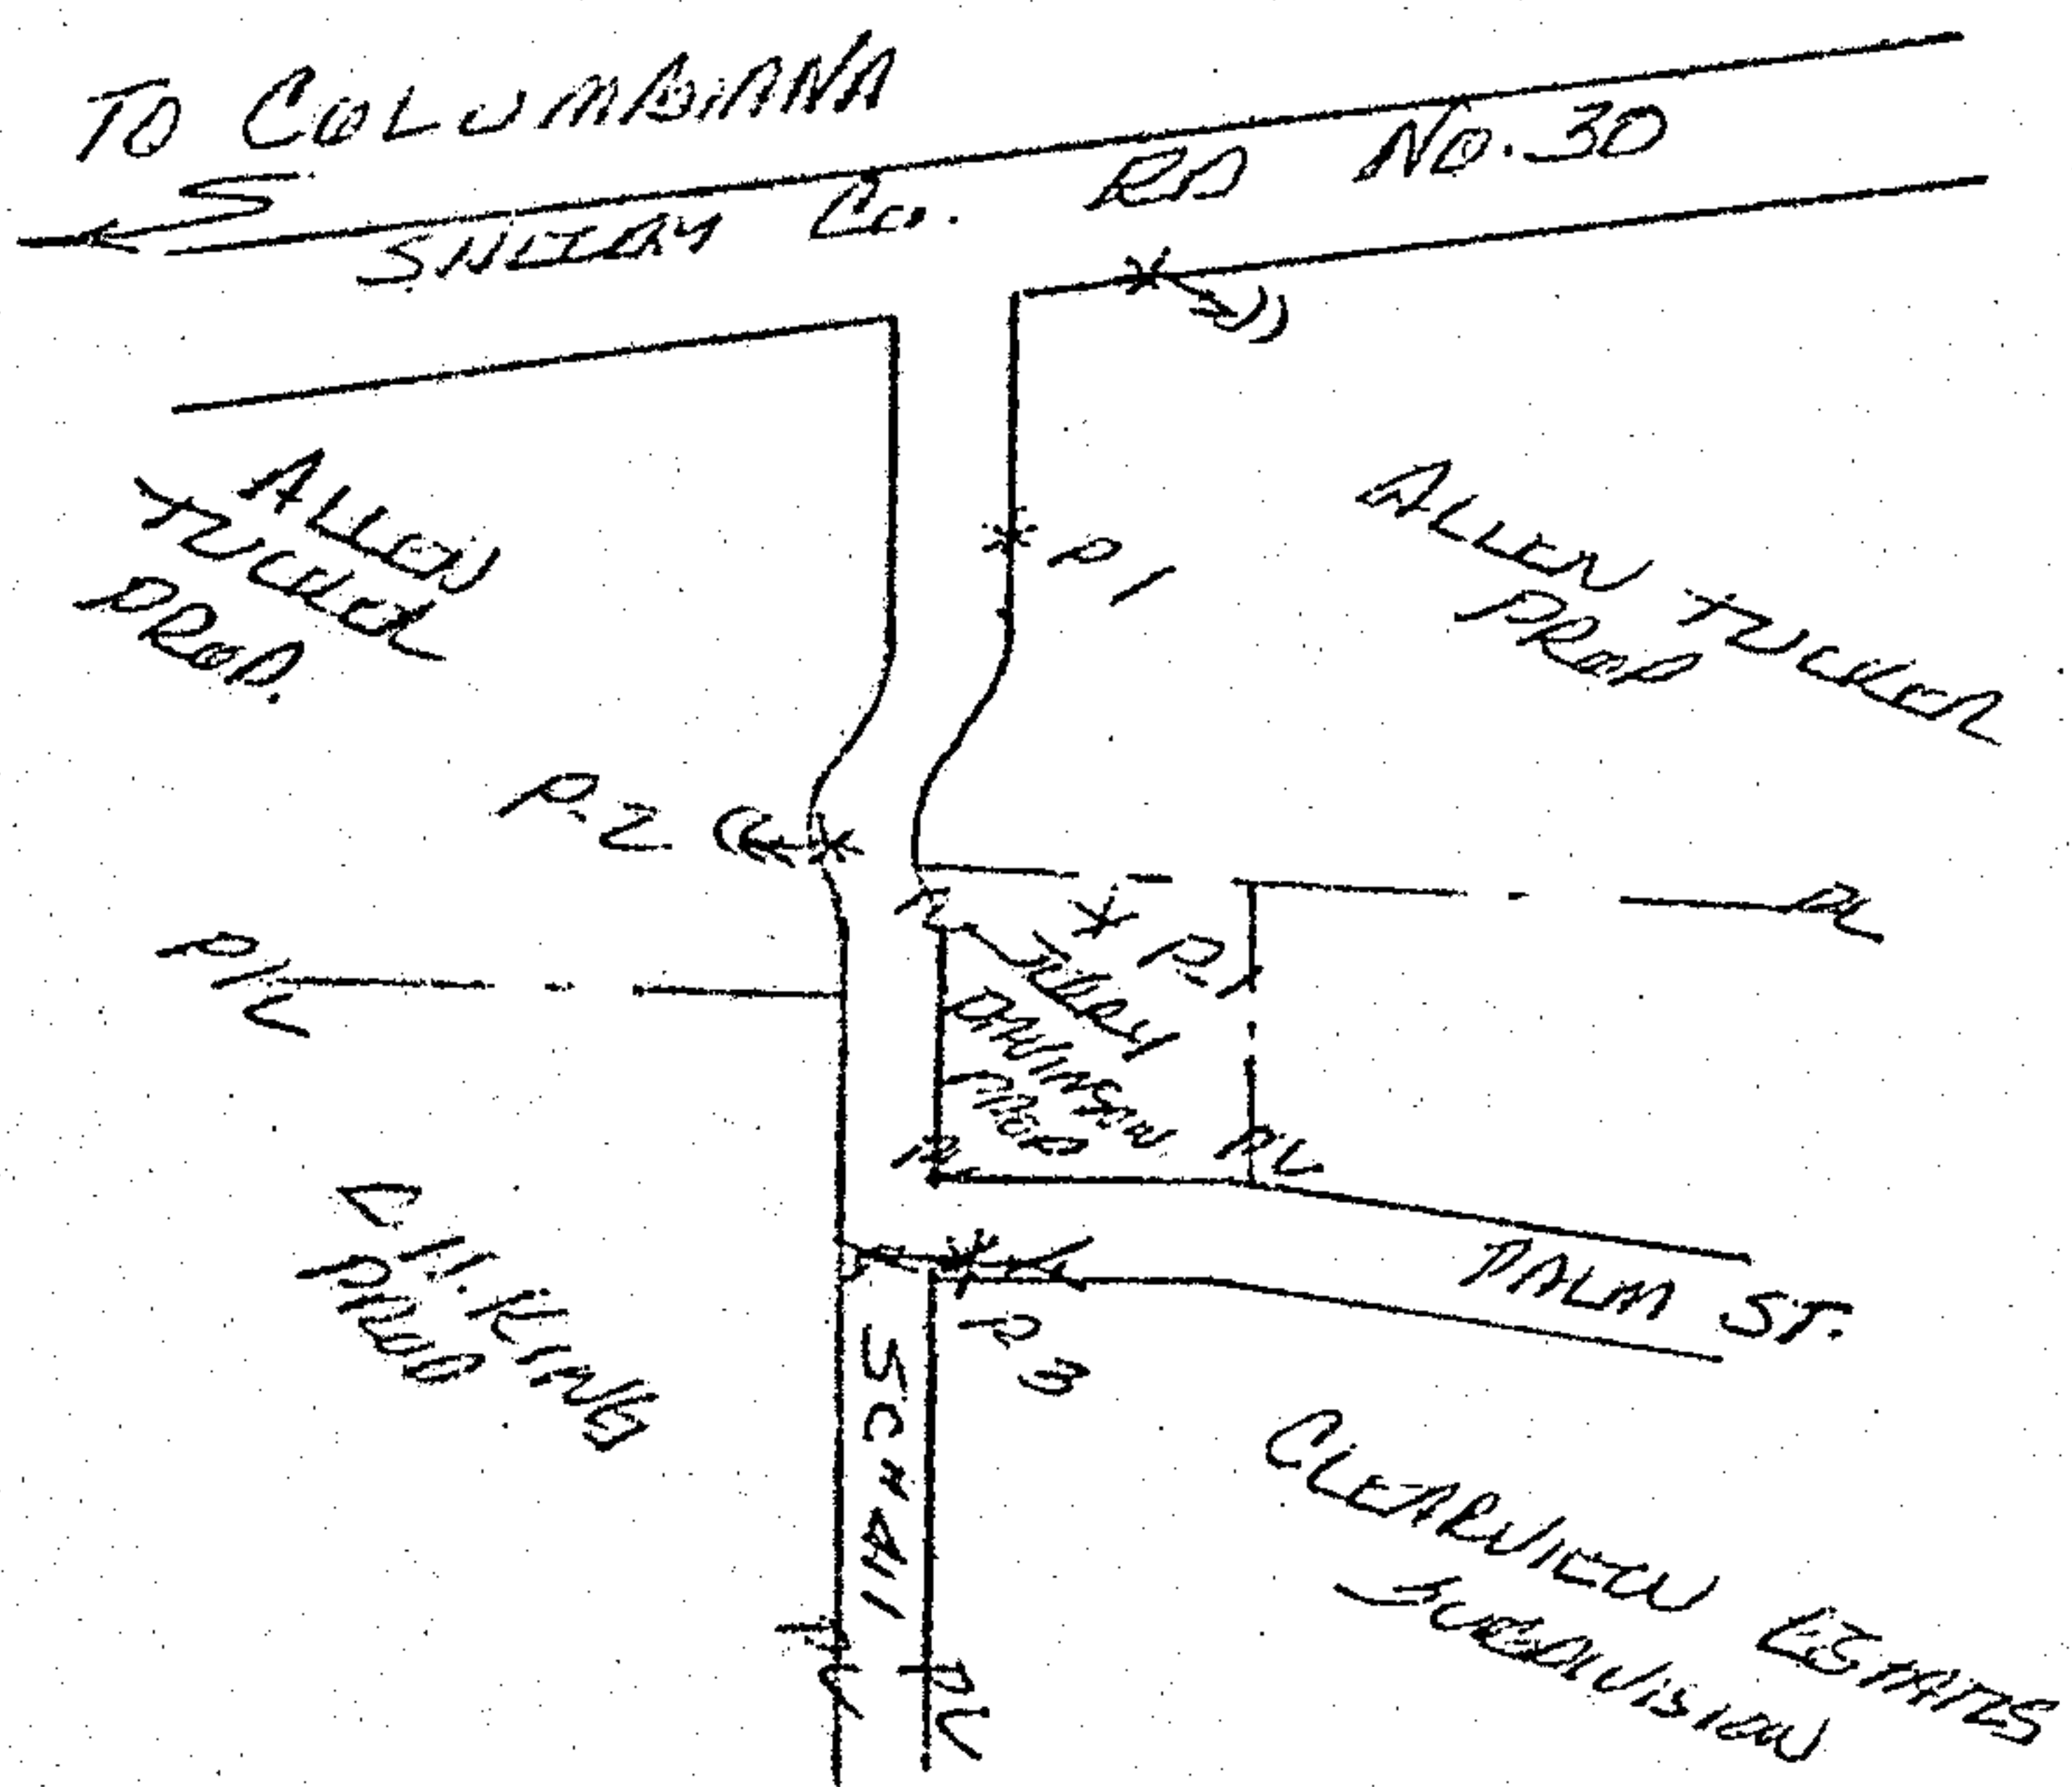 TO COLUMBIANA
SHELBY Co. RD NO. 30
ALLEN
TUCKER
PROP.
ALLEN TUCKER
PROP
P 1
P-2
PL
P/L
PL
P.1
JERRY
DAVIDSON
PROP
PL
PL
C.H. KING
PROP
PALM ST.
P 3
SC #411
CLEARVIEW ESTATES
SUBDIVISION
PL
PL